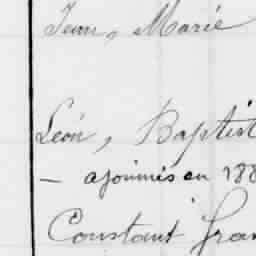 Jean, Marie
Léon, Baptist
— ajournés en 188
Constant Fran